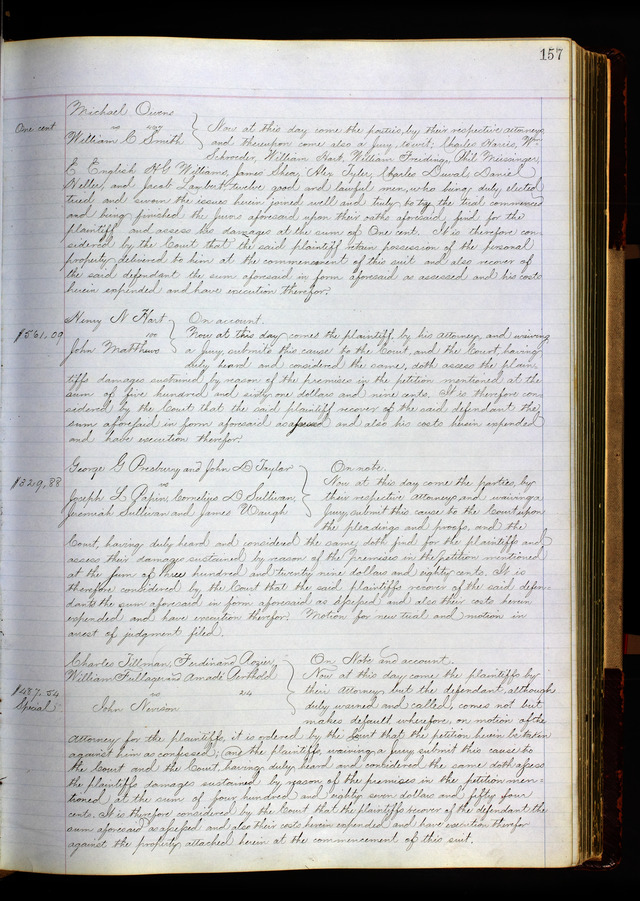 157
Michael Owens
One cent
vs
William C Smith } Now at this day come the parties, by their respective attorneys
and thereupon come also a jury, towit; Charles Harris, Wm
Schroeder, William Hart, William Freeding, Phil Meissinger,
E English H G Williams, James Shea, Alex Tyler, Charles Duval, Daniel
Keller, and Jacob twelve good and lawful men, who being duly elected
tried and sworn the issues herein joined well and truly to try the trial commenced
and being finished the jurors aforesaid upon their oaths aforesaid, find for the
plaintiff and assess his damages at the sum of One cent. It is therefore con-
sidered by the Court that the said plaintiff retain possession of the personal
property delivered to him at the commencement of this suit and also recover of
the said defendant the sum aforesaid in form aforesaid as assessed and his costs
herein expended and have execution therefor.
Henry N Hart } On account.
$561.09
vs
Now at this day comes the plaintiff by his attorney, and waiving
John Matthews
a jury submits this cause to the Court, and the Court, having
duly heard and considered the same, doth assess the plain-
tiffs damages sustained by reason of the premises in the petition mentioned at the
sum of five hundred and sixty one dollars and nine cents. It is therefore con-
sidered by the Court that the said plaintiff recover of the said defendant the
sum aforesaid in form aforesaid as assessed and also his costs herein expended
and have execution therefor.
George G Presbury and John D Taylor } On note.
$329,88
vs
Now at this day come the parties, by
Joseph L Papin, Cornelius D Sullivan,
their respective attorneys and waiving a
Jeremiah Sullivan and James Waugh
jury, submit this cause to the Court upon
the pleadings and proofs, and the
Court, having duly heard and considered the same, doth find for the plaintiff and
assess their damages sustained by reason of the Premises in the petition mentioned
at the sum of three hundred and twenty nine dollars and eighty cents. It is
therefore considered by the Court that the said plaintiffs recover of the said defen-
dants the sum aforesaid in form aforesaid as assessed and also their costs herein
expended and have execution therefor. Motion for new trial and motion in
arrest of judgment filed.
Charles Tillman, Ferdinand Rozier, } On Note and account.
William and Amadi Berthold
Now at this day come the plaintiffs by
$487.54
Special
vs 24
their attorney but the defendant, although
John Nevison
duly warned and called, comes not but
makes default wherefore, on motion of the
Attorney for the plaintiffs, it is ordered by the Court that the petition herein be taken
against him as confessed, and the plaintiffs, waiving a jury, submit this cause to
the Court and the Court, having duly heard and considered the same doth assess
the plaintiffs damages sustained by reason of the premises in the petition men=
tioned, at the sum of four hundred and eighty seven dollars and fifty four
cents. It is therefore considered by the Court that the plaintiffs recover of the defendant the
sum aforesaid as assessed and also their costs herein expended and have execution therefor
against the property attached herein at the commencement of this suit.